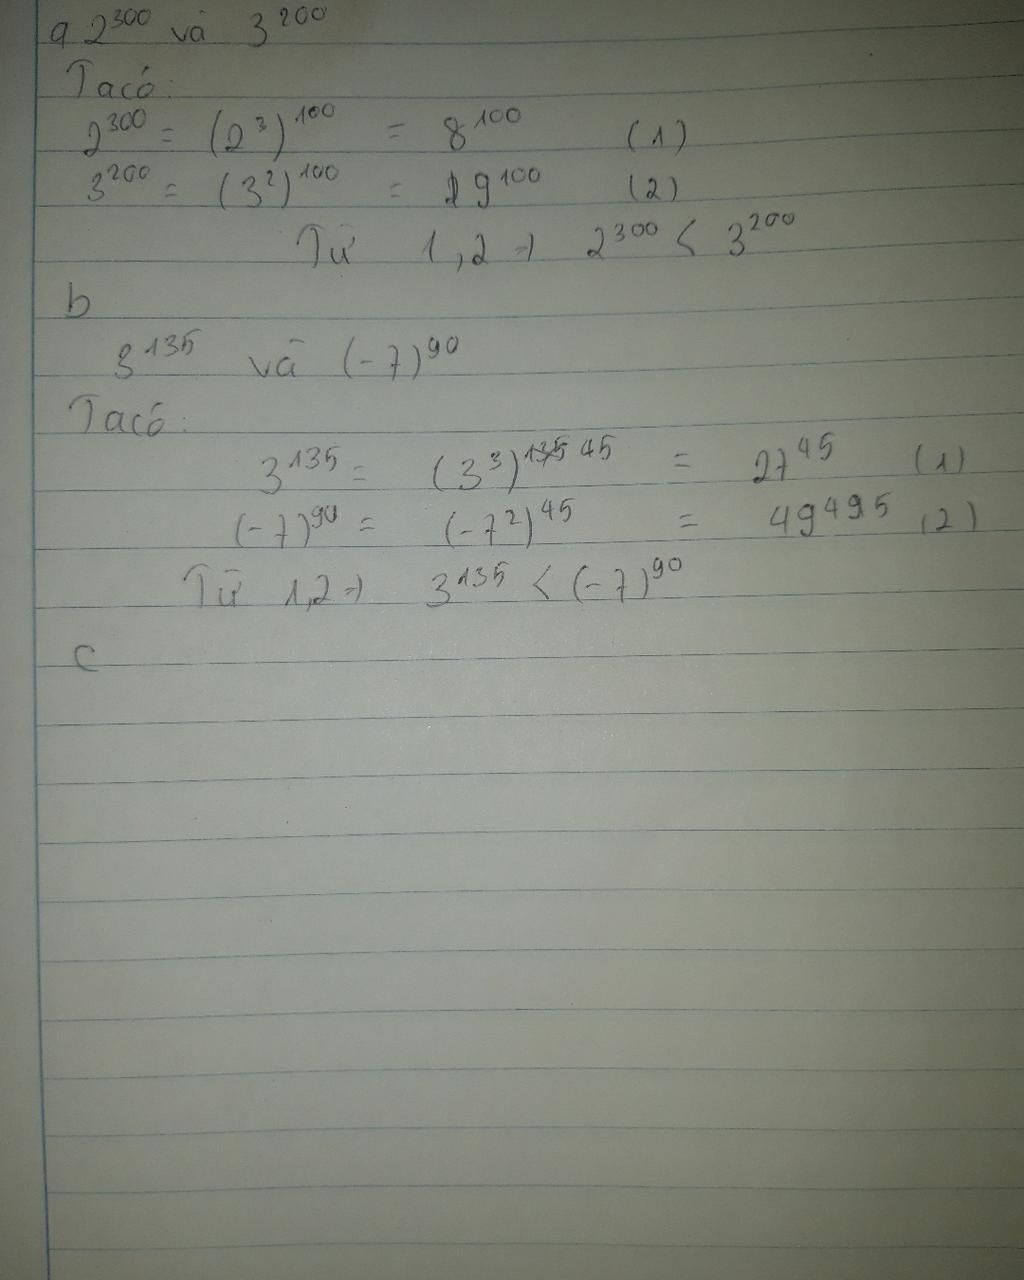 a 2³⁰⁰ và 3²⁰⁰
Ta có:
2³⁰⁰ = (2³)¹⁰⁰ = 8¹⁰⁰ (1)
3²⁰⁰ = (3²)¹⁰⁰ = 9¹⁰⁰ (2)
Từ 1,2 => 2³⁰⁰ < 3²⁰⁰
b
3¹³⁵ và (-7)⁹⁰
Ta có:
3¹³⁵ = (3³)⁴⁵ = 27⁴⁵ (1)
(-7)⁹⁰ = (-7²)⁴⁵ = 49⁴⁹⁵ (2)
Từ 1,2 => 3¹³⁵ < (-7)⁹⁰
c